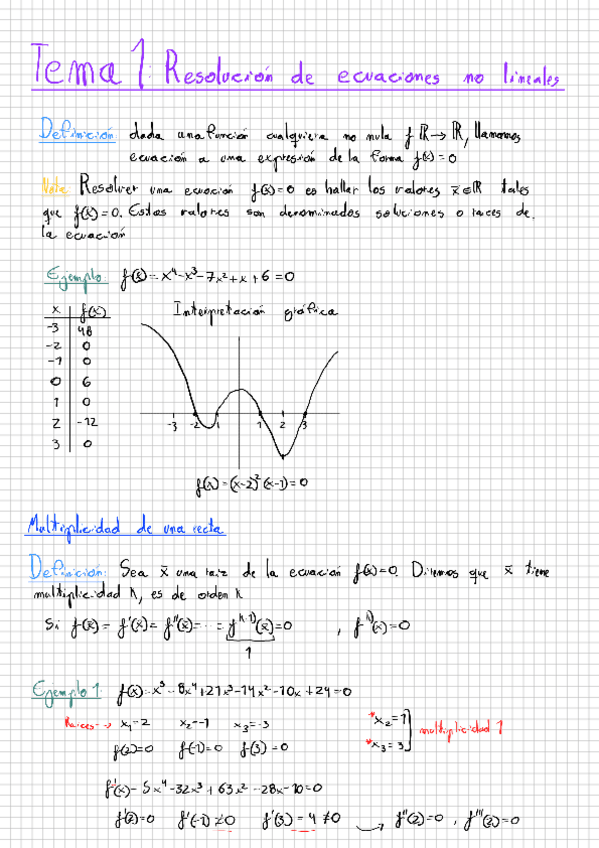 Tema 1: Resolución de ecuaciones no lineales
Definición: dada una función cualquiera no nula f: ℝ→ℝ, llamamos
ecuación a una expresión de la forma f(x)=0
Nota: Resolver una ecuación f(x)=0 es hallar los valores x̄∈ℝ tales
que f(x̄)=0. Estos valores son denominados soluciones o raices de
la ecuación
Ejemplo: f(x)=x⁴-x³-7x²+x+6=0
x f(x) Interpretación gráfica
-3 48
-2 0
-1 0
0 6
1 0
2 -12
3 0
-3 -2 -1 1 2 3
f(x)=(x-2)²(x-1)=0
Multiplicidad de una recta
Definición: Sea x̄ una raiz de la ecuación f(x)=0. Diremos que x̄ tiene
multiplicidad k, es de orden k
Si f(x̄)=f'(x̄)=f''(x̄)=...=f^(k-1)(x̄)=0 , f^k)(x̄)=0
1
Ejemplo 1: f(x)=x⁵-8x⁴+21x³-14x²-20x+24=0
Raices→ x₁=2 x₂=-1 x₃=3 *x₂=1
*x₃=3 multiplicidad 1
f(2)=0 f(-1)=0 f(3)=0
f'(x)=5x⁴-32x³+63x²-28x-20=0
f'(2)=0 f'(-1)≠0 f'(3)=4≠0 → f''(2)=0, f'''(2)=0